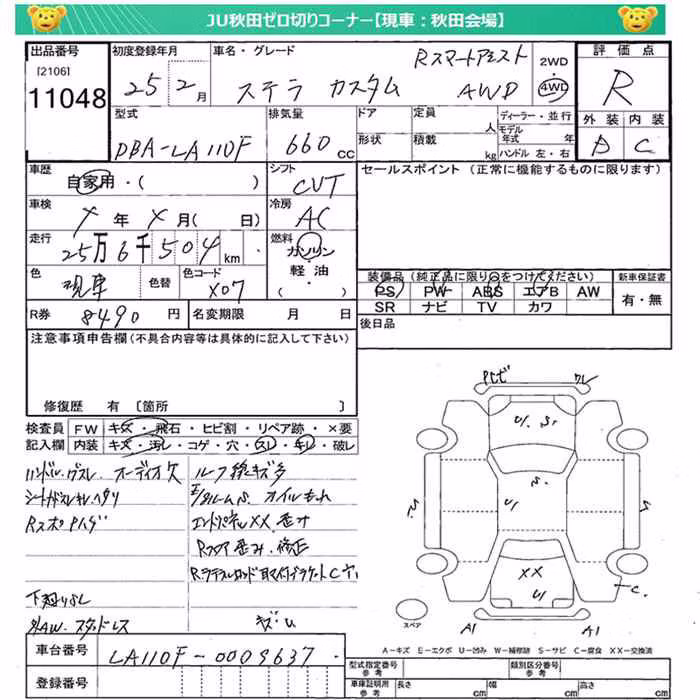 JU秋田ゼロ切りコーナー【現車：秋田会場】
出品番号
[2106]
11048
初度登録年月
25 2 月
車名・グレード
ステラ カスタム Rスマートアシスト AWD
2WD
4WD
評価点
R
外装 内装
D C
型式
DBA-LA110F
排気量
660 cc
ドア
形状
定員 人
積載 kg
ディーラー・並行
モデル年式 年
ハンドル 左・右
車歴
自家用・( )
シフト
CVT
車検
X 年 X 月( 日)
冷房
AC
走行
25万6千504 km
燃料
ガソリン
軽油
・
色
現車
色替
色コード
X07
R券 8490 円
名変期限 月 日
セールスポイント (正常に機能するものに限ります)
装備品 (純正品に限り○をつけてください)
PS PW ABS エアB AW
SR ナビ TV カワ
新車保証書
有・無
後日品
注意事項申告欄(不具合内容等は具体的に記入して下さい)
修復歴 有 〔箇所 〕
検査員記入欄
FW キズ・飛石・ヒビ割・リペア跡・×要
内装 キズ・汚レ・コゲ・穴・スレ・キレ・破レ
ハンドル.グスレ オーディオ欠
ルーフ後キズ多
オイルもれ
エンドパネルXX.歪み
Rフロア歪み.修正
下廻りサビ
社外AW.スタッドレス
キズ・U
U.S.
S.
U
XX
U
C
A1
A1
スペア
A−キズ E−エクボ U−凹み W−補修跡 S−サビ C−腐食 XX−交換済
車台番号
LA110F-0009637
登録番号
型式指定番号 参考
類別区分番号 参考
車庫証明用 参考
長さ cm
幅 cm
高さ cm